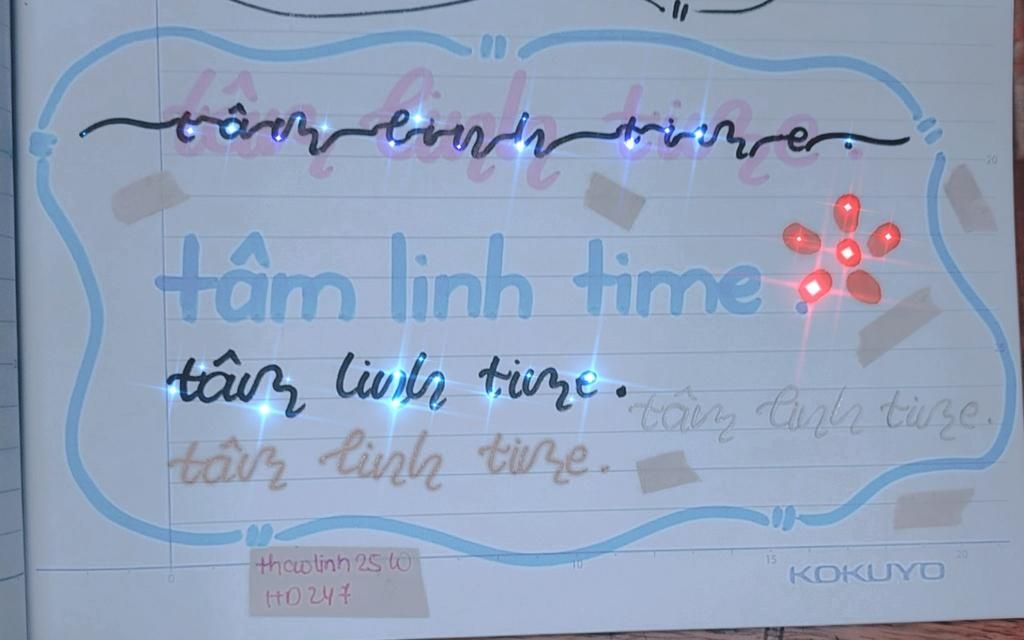 tâm linh time.
tâm linh time.
tâm linh time.
tâm linh time.
tâm linh time.
tâm linh time.
20
0
10
15
20
KOKUYO
HD 247